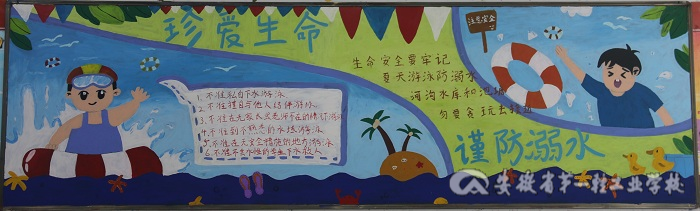 珍爱生命
1.不准私自下水游泳
2.不准擅自与他人结伴游泳
3.不准在无家长或老师
4.不准到不熟悉的水域游泳
5.不准在无安全措施的地方游泳
6.不准不会水性的学生下水救人
生命安全要牢记
夏天游泳防溺水
河沟水库和池塘
勿要贪玩去
注意安全
谨防溺水
安徽省第一轻工业学校